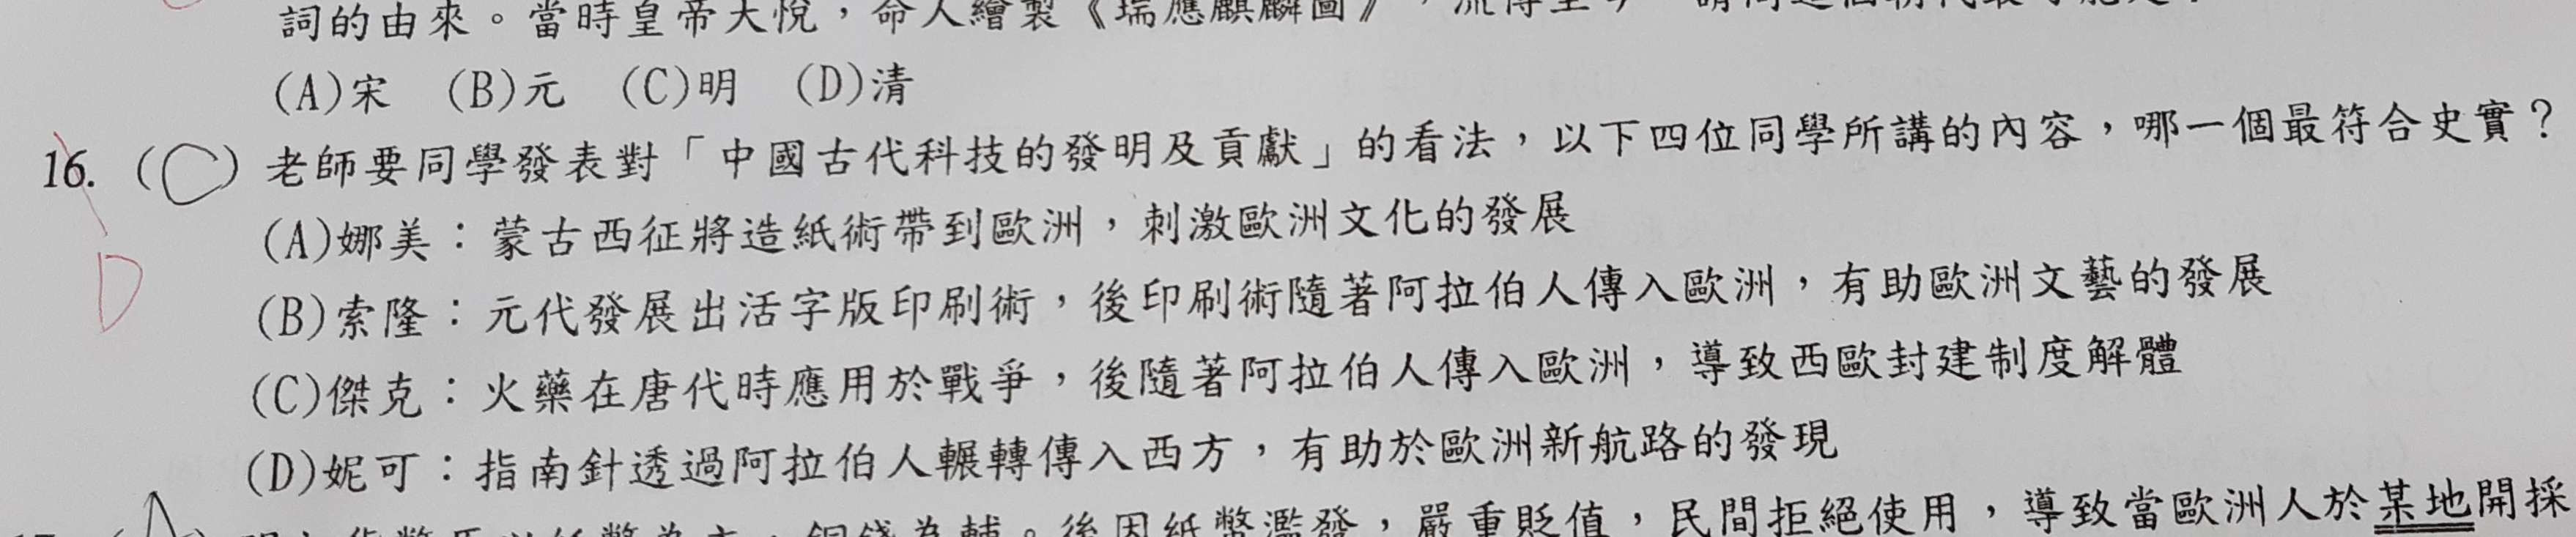 詞的由來。當時皇帝大悅，命人繪製《瑞應麒麟圖》，流傳至今
(A)宋 (B)元 (C)明 (D)清
16. (C) 老師要同學發表對「中國古代科技的發明及貢獻」的看法，以下四位同學所講的內容，哪一個最符合史實？
(A)娜美：蒙古西征將造紙術帶到歐洲，刺激歐洲文化的發展
D
(B)索隆：元代發展出活字版印刷術，後印刷術隨著阿拉伯人傳入歐洲，有助歐洲文藝的發展
(C)傑克：火藥在唐代時應用於戰爭，後隨著阿拉伯人傳入歐洲，導致西歐封建制度解體
(D)妮可：指南針透過阿拉伯人輾轉傳入西方，有助於歐洲新航路的發現
後因紙幣濫發，嚴重貶值，民間拒絕使用，導致當歐洲人於某地開採